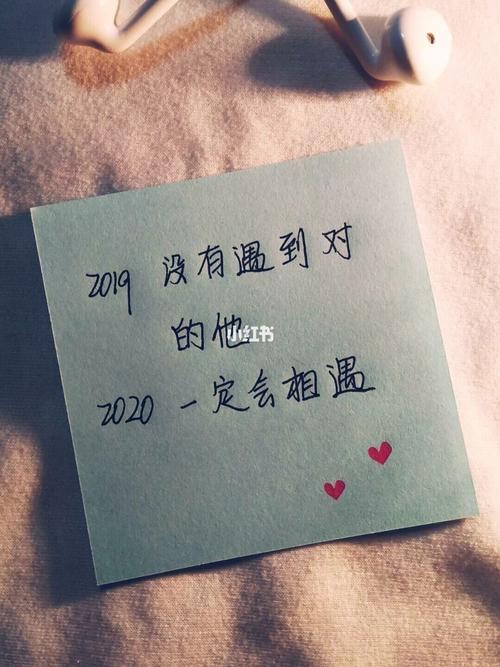 2019 没有遇到对
的他
小红书
2020 一定会相遇